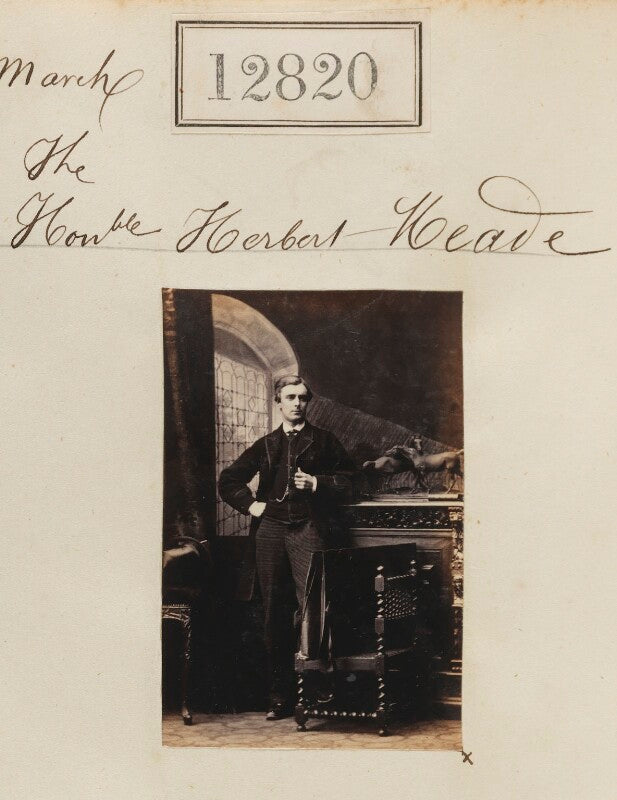 March
12820
The
Honble Herbert Meade
x